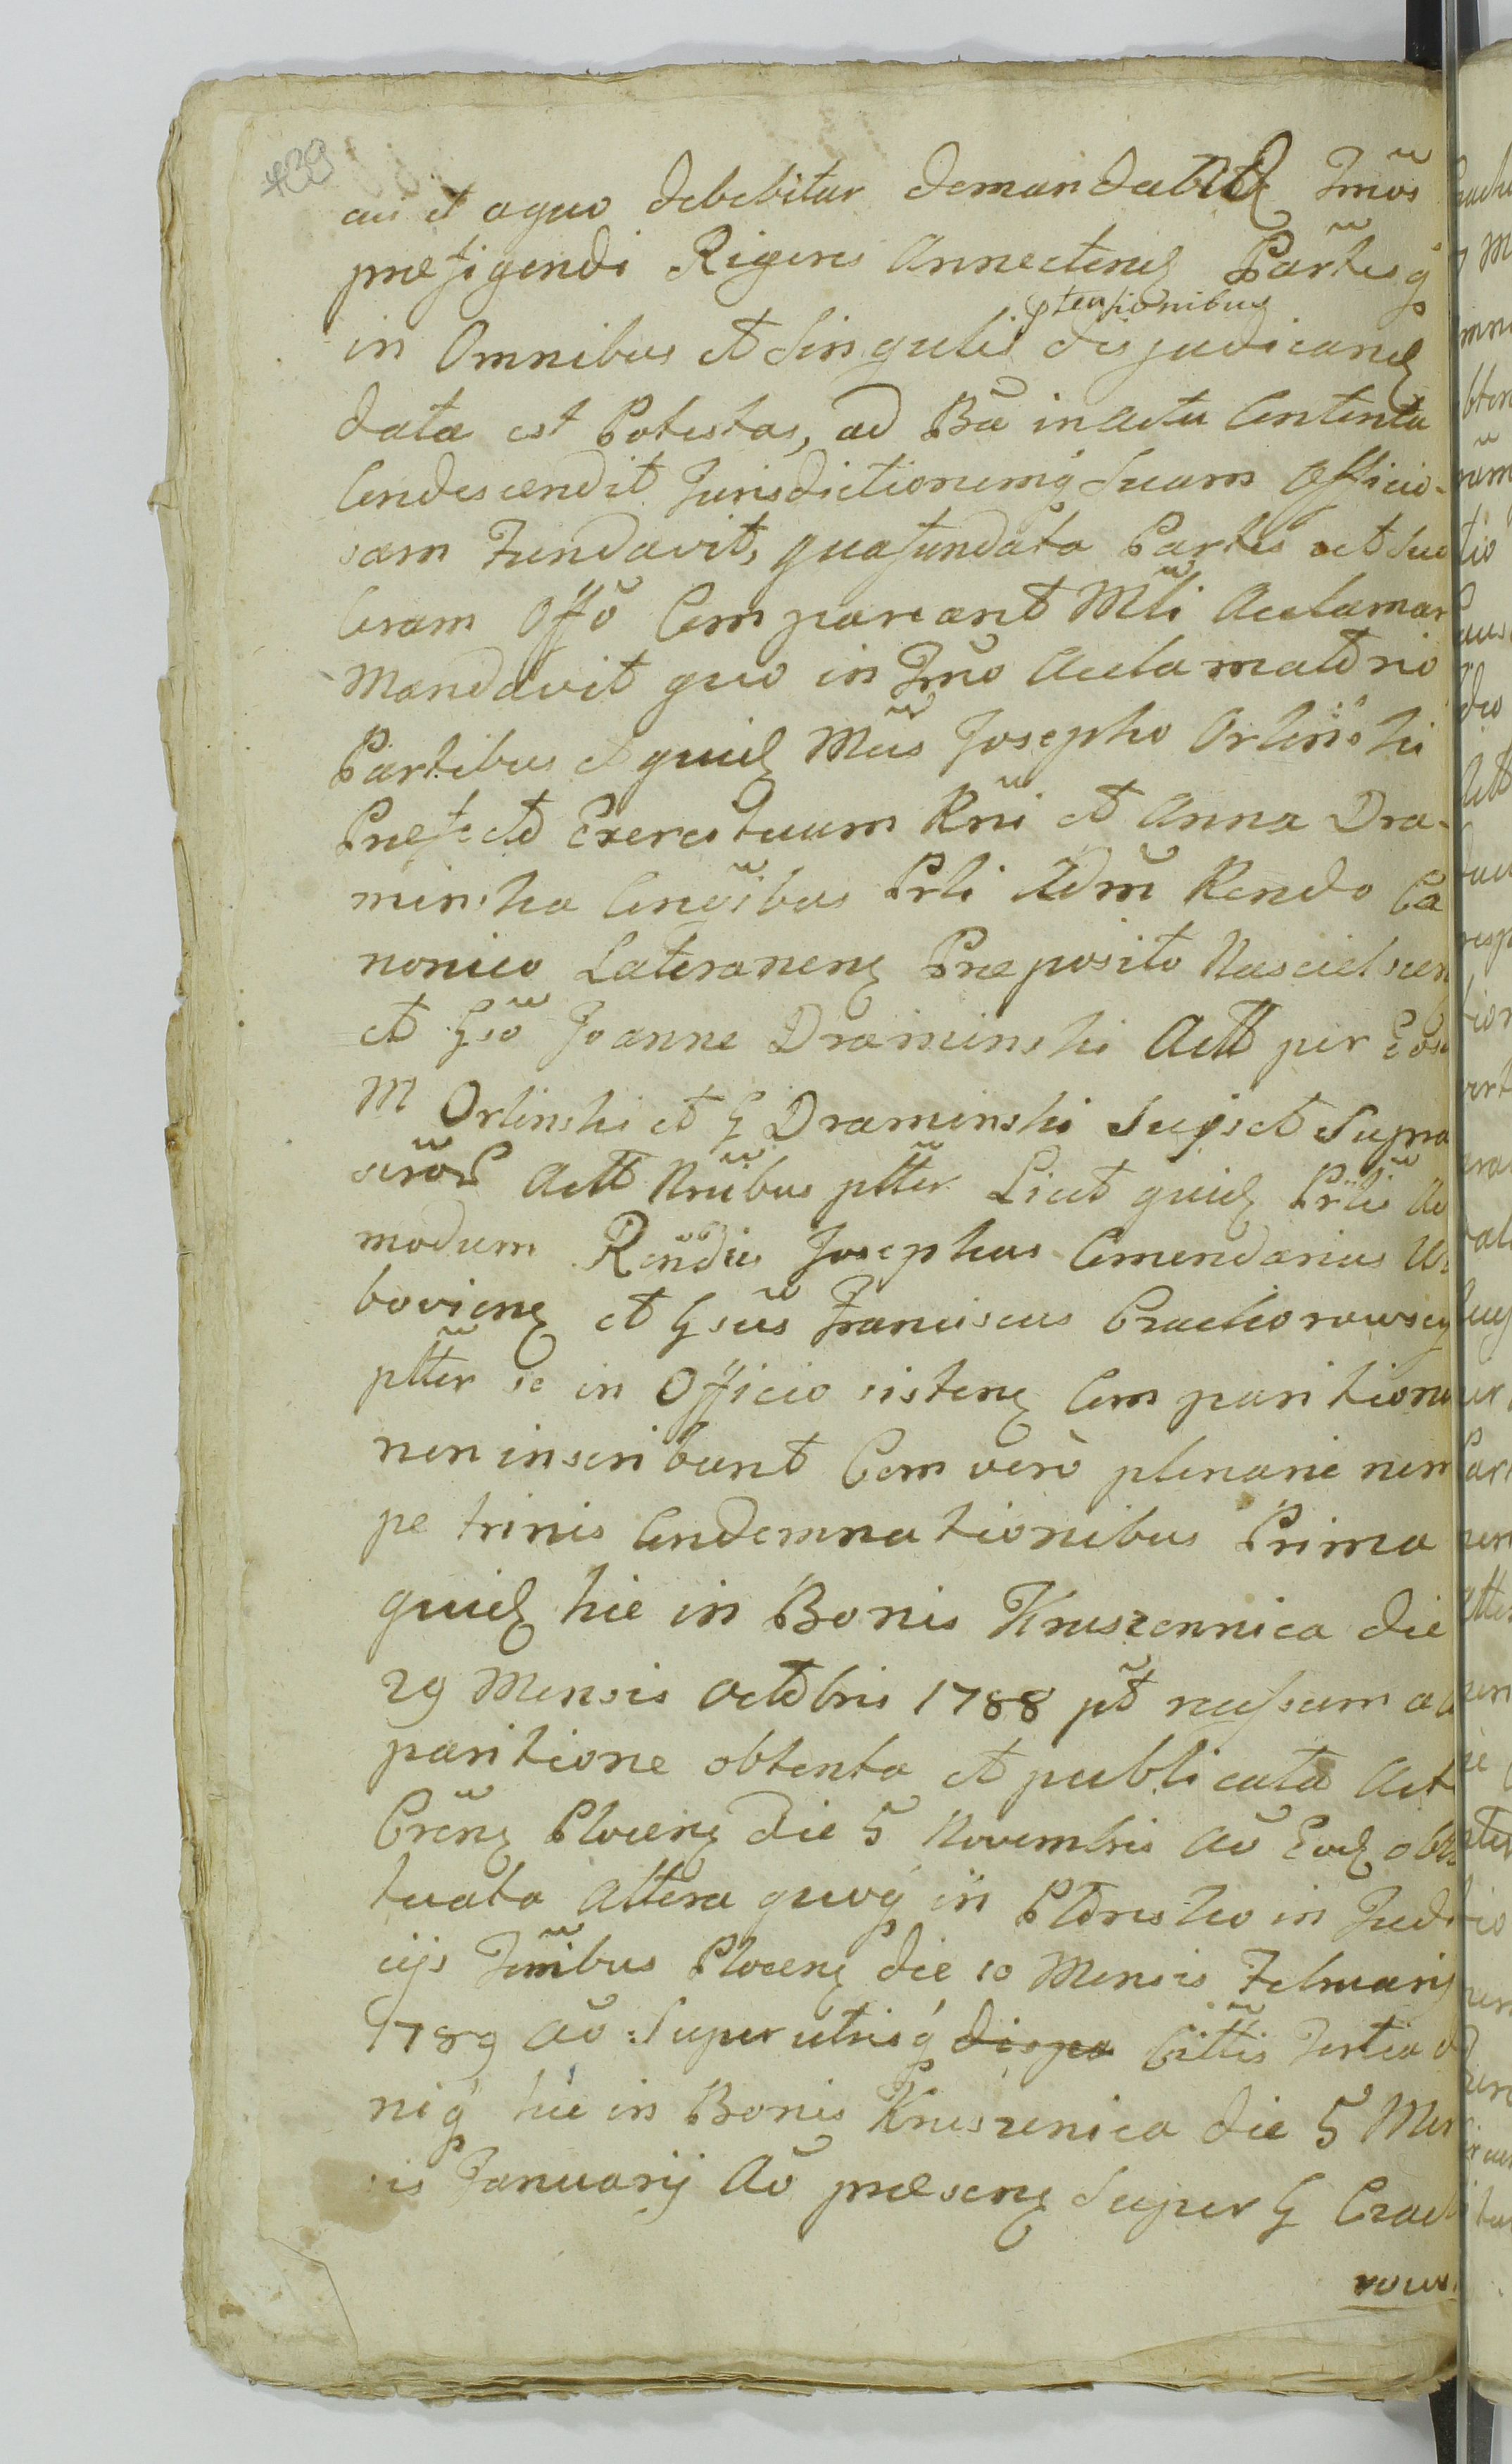 439
cui et a quo debebitur demandatq Tmõs
præfigendi Rigores Annectenq Partesq́
in Omnibus et Singulis ptensionibus disjudicanq
data est Potestas, ad Bã in actu Contenta
Condescendit Jurisdictionemq́ Suam Officio-
sam Fundavit, qua fundata Partes ut Suo
Coram Offõ Compareant Mtli Acclamar
Mandavit quo in Tmõ Acclamato rio
Partibus et quidq Mcis Josepho Orlinski
Præfecto Exercituum Rni et Anna Dra-
minska Conjgibus Prli Adm Rendo Ca
nonico Lateranenq Præposito Nasielscen
et Gso Joanne Draminski Actt per Eos
M Orlinski et G Draminski Suis et Supra
scrõr Actt Nnibus pltter Licet quidq Prlis Ad
modum Rendus Josephus Comendarius
bovienq et Gsus Franciscus Czachorowscy
pltter se in Officio sistenq Comparitione
non inscribunt Cum vero plenarie nem
pe trinis Condemnationibus Prima
quidq hic in Bonis Kruszennica die
29 Mensis Octobris 1788 pt recusam a
paritione obtenta et publicata Act
Crenq Plocenq die 5 Novembris Aõ Eodq obla
tuata Altera quoq́ in Płonsko in Judi
cijs Tmibus Plocenq die 10 Mensis Februarij
1789 Aõ Super utrisq́ Cittis Tertia d
niq́ hic in Bonis Kruszenica die 5 Men
sis Januarij Aõ præsenq Super G Czach
rows